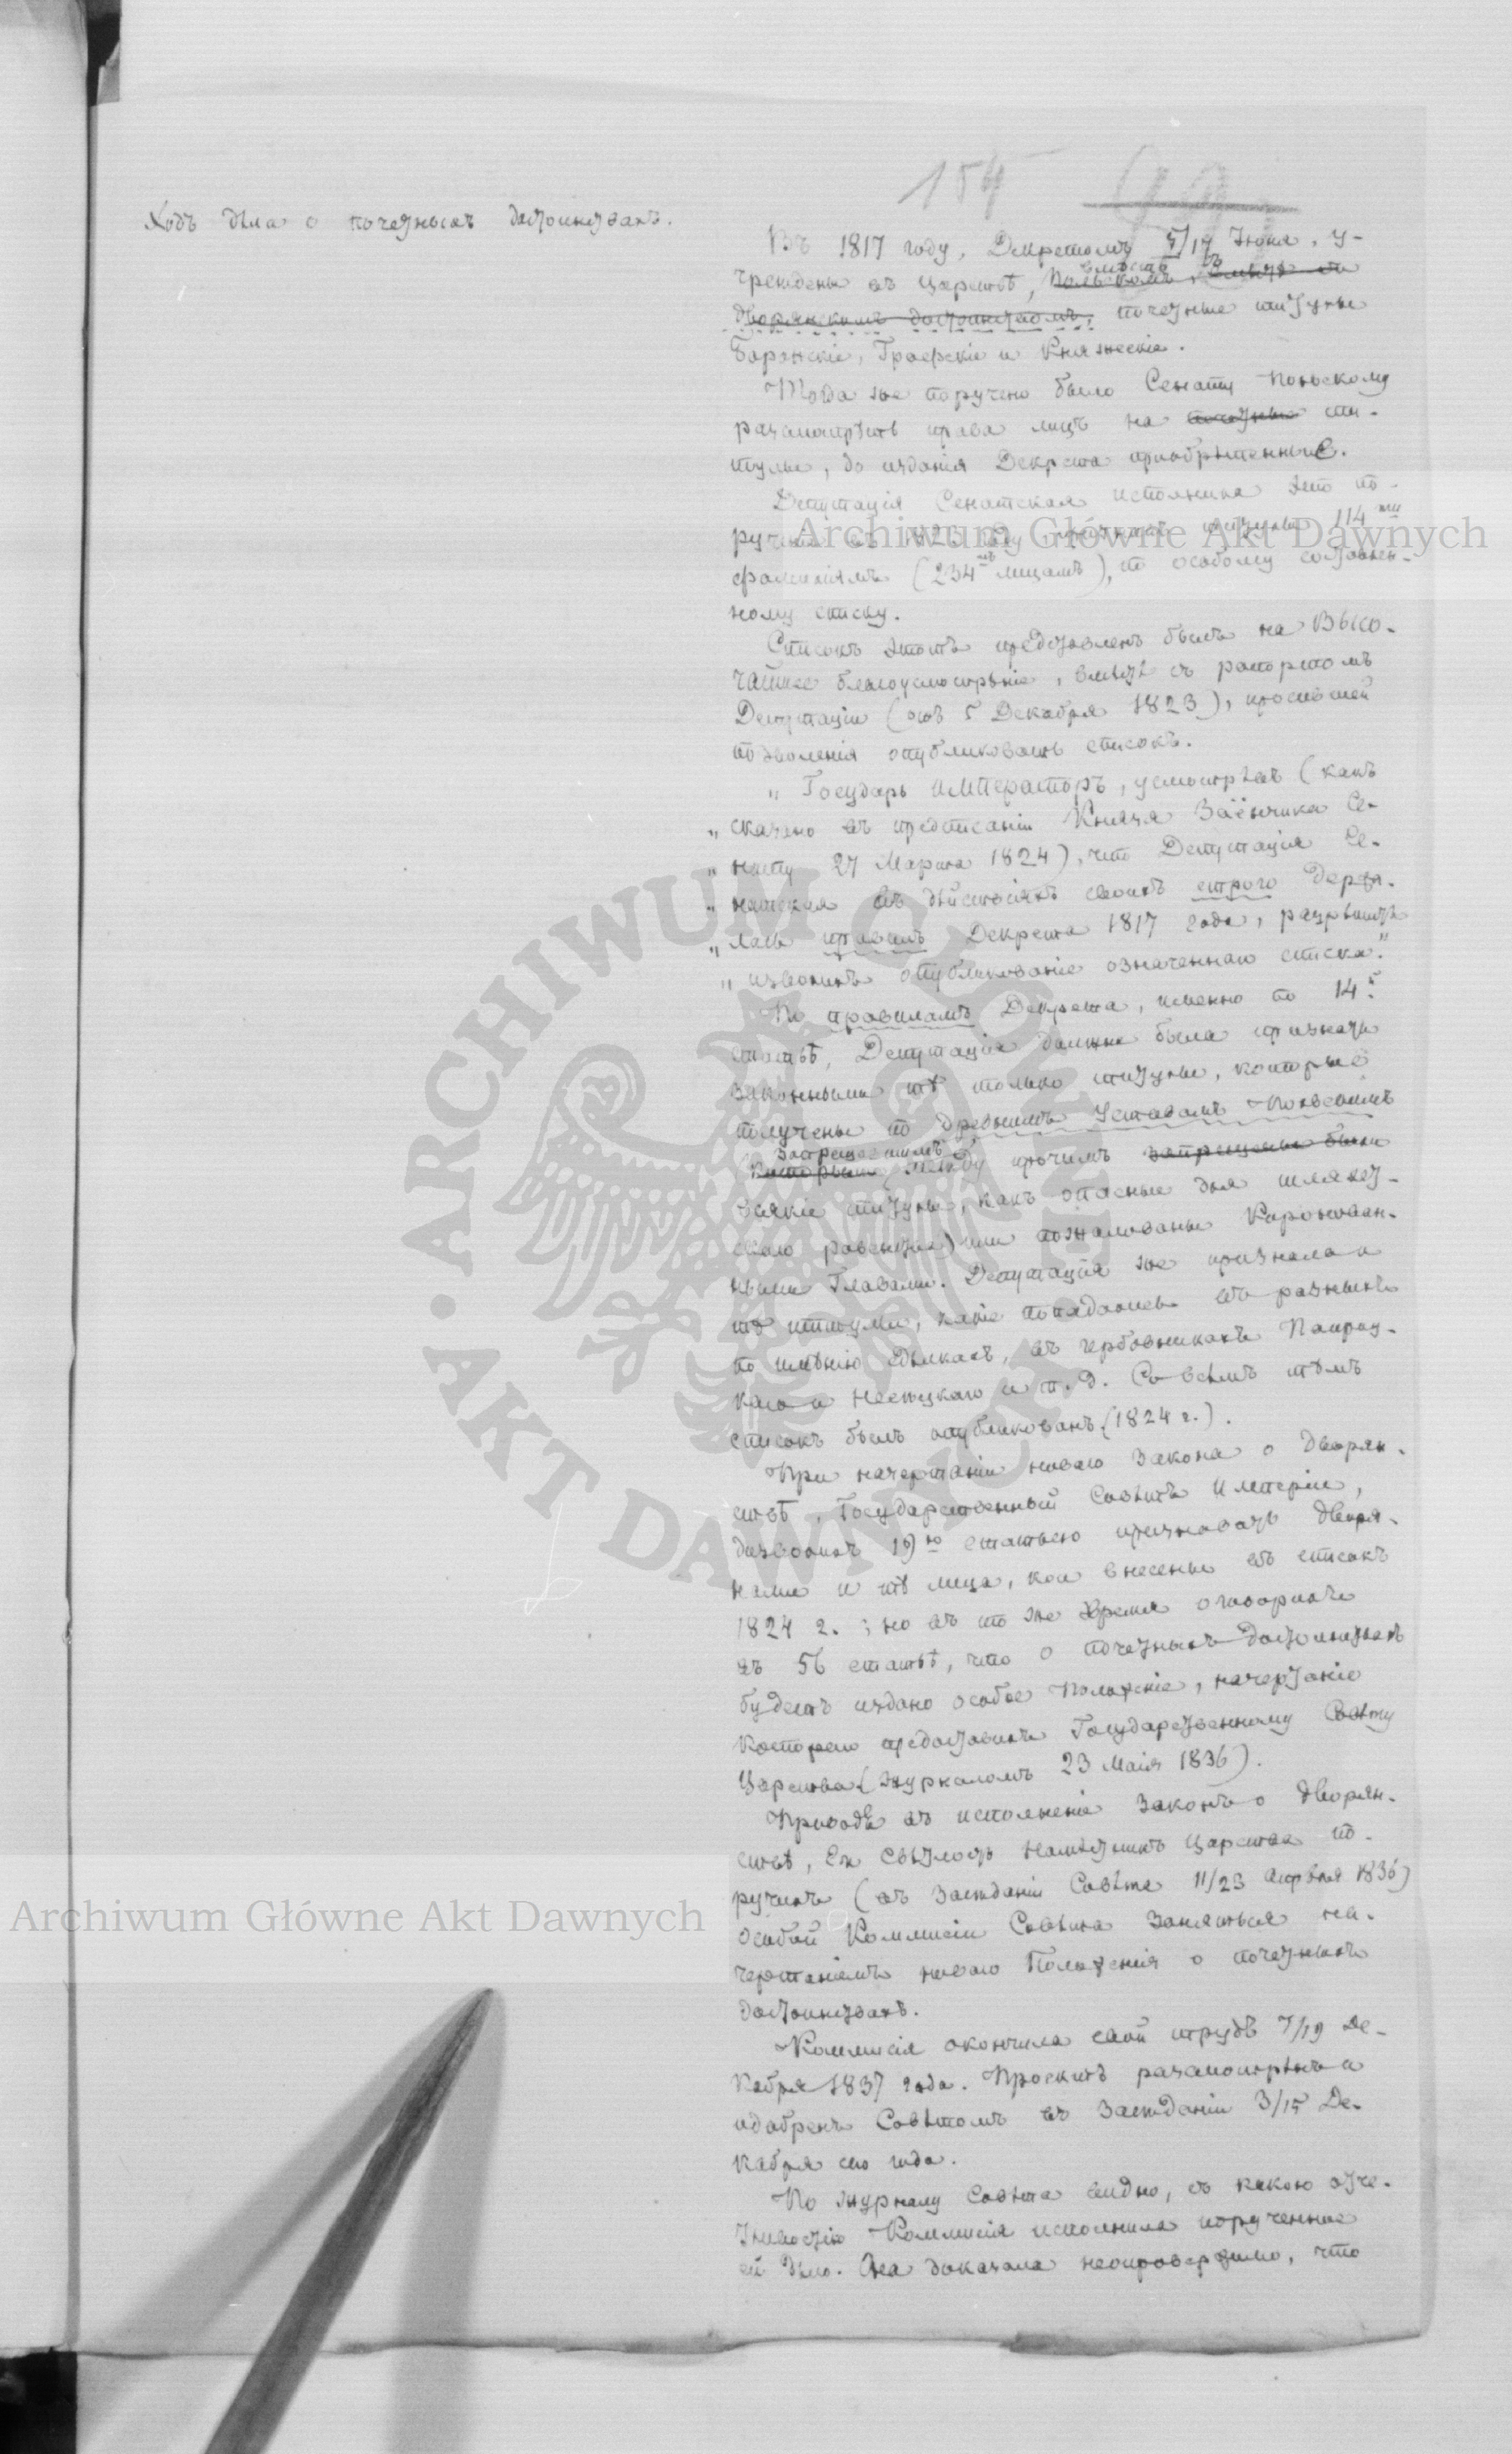 154
Ходъ дѣла о почетныхъ достоинствахъ.
Въ 1817 году, Декретомъ 5/17 Июня, у-
чреждены въ Царствѣ, Польскомъ, вмѣстѣ съ
дворянскимъ достоинствомъ, почетные титулы
Баронскіе, Графскіе и Княжескіе.
Тогда же поручено было Сенату Польскому
разсмотрѣть права лицъ на почетные ти-
тулы, до изданія Декрета приобрѣтенные.
Депутація Сенатская исполнила это по-
рученіе въ году, титулы 114ти
фамиліямъ (234мъ лицамъ), по особому составлен-
ному списку.
Списокъ этотъ представленъ былъ на Высо-
чайшее благоусмотрѣніе, вмѣстѣ съ рапортомъ
Депутаціи (отъ 5 Декабря 1823), просившей
позволенія опубликовать списокъ.
„ Государь Императоръ, усмотрѣвъ (какъ
„ сказано въ предписаніи Князя Заіончика Се-
„ нату 27 Марта 1824), что Депутація Се-
„ натская въ дѣйствіяхъ своихъ строго держа-
„ лась правилъ Декрета 1817 года, разрѣшить
„ изволилъ опубликованіе означеннаго списка."
По правиламъ Декрета, именно по 14й
статьѣ, Депутація должна была признать
законными тѣ только титулы, которые
получены по древнимъ Уставамъ Польскимъ
запрещавшимъ
(которыми (между прочимъ запрещены были
всякіе титулы, какъ опасные для шляхет-
скаго равенства) или пожалованы Коронован-
ными Главами. Депутація же признала и
тѣ титулы, какіе попадались въ разныхъ
по имѣнію сдѣлкахъ, въ гербовникахъ Папроц-
каго и Несецкаго и т. д. Со всѣмъ тѣмъ
списокъ былъ опубликованъ (1824 г.).
При начертаніи новаго Закона о Дворян-
ствѣ, Государственный Совѣтъ Имперіи,
дозволилъ 19ю статьею признавать дворя-
нами и тѣ лица, кои внесены въ списокъ
1824 г. ; но въ то же время оговорилъ
въ 56 статьѣ, что о почетныхъ достоинствахъ
будетъ издано особое Положеніе, начертаніе
котораго предоставилъ Государственному Совѣту
Царства (журналомъ 23 Маія 1836).
Приводя въ исполненіе Законъ о Дворян-
ствѣ, Его Свѣтлость Намѣстникъ Царства по-
ручилъ (въ засѣданіи Совѣта 11/23 1836)
особой Коммисіи Совѣта заняться на-
чертаніемъ новаго Положенія о почетныхъ
достоинствахъ.
Коммисія окончила свой трудъ 7/19 Де-
кабря 1837 года. Проектъ разсмотрѣнъ и
одобренъ Совѣтомъ въ засѣданіи 3/15 Де-
кабря сего года.
По журналу Совѣта видно, съ какою отче-
тливостію Коммисія исполнила порученное
ей дѣло. Она доказала неопровержимо, что
Archiwum Główne Akt Dawnych
Archiwum Główne Akt Dawnych
ARCHIWUM GŁÓWNE AKT DAWNYCH